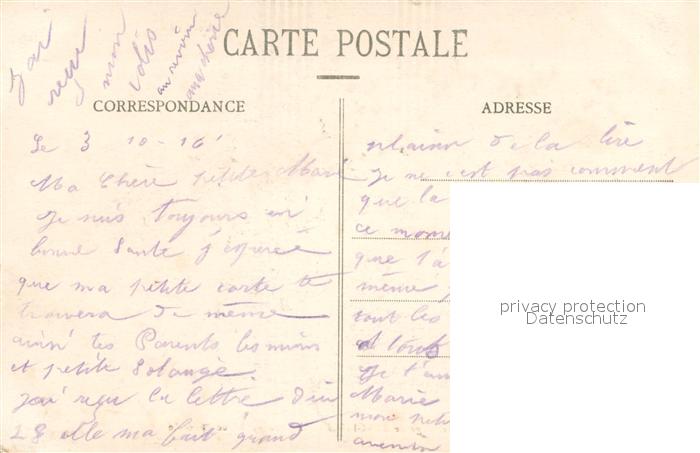 J'ai
reçu
mon
colis
au revoir
ma chérie
CARTE POSTALE
CORRESPONDANCE
ADRESSE
Le 3 10-16
Ma Chère petite Marie
Je suis toujours en
bonne Santé j'espère
que ma petite carte te
trouvera de même
ainsi tes Parents les miens
et petite Solange.
J'ai reçu ta lettre du
28 elle ma fait grand
plaisir de la lire
Je ne c'est pas comment
que la
ce mome
que t'a
même
tout les
et tout
Je t'em
Marie
mon peti
avenir
privacy protection
Datenschutz